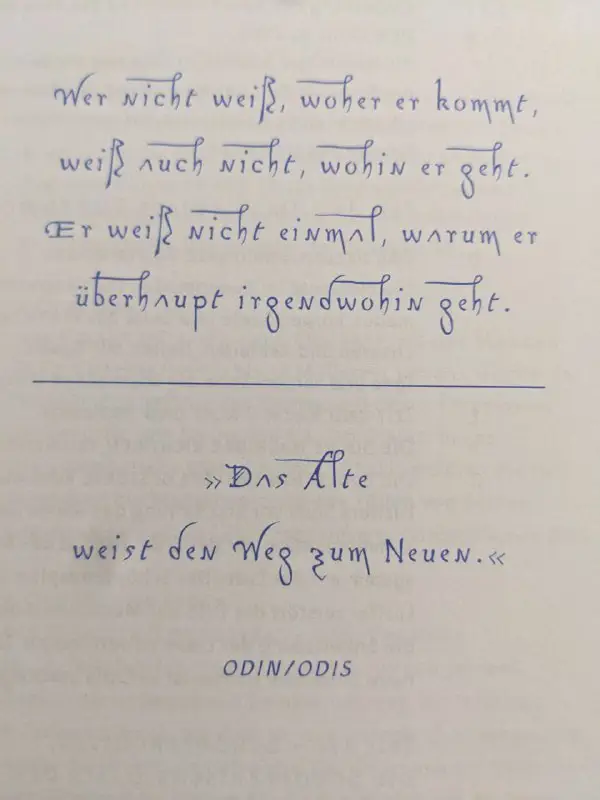 Wer nicht weiß, woher er kommt,
weiß auch nicht, wohin er geht.
Er weiß nicht einmal, warum er
überhaupt irgendwohin geht.
»Das Alte
weist den Weg zum Neuen.«
ODIN/ODIS